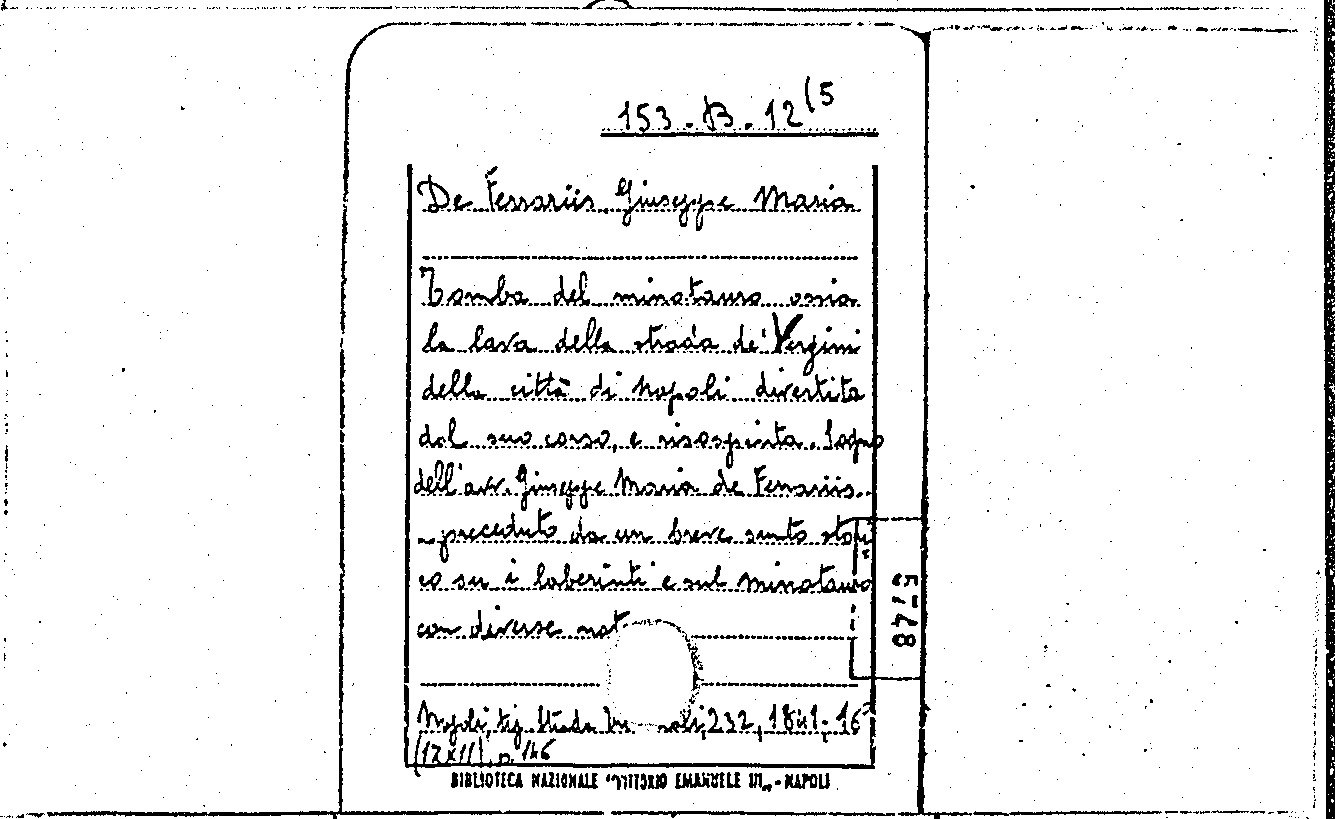 153-B-12(5
De Ferrariis Giuseppe Maria
Tomba del minotauro ossia
la lava della strada de' Vergini
della città di Napoli divertita
dal suo corso, e risospinta. Sogno
dell'avv. Giuseppe Maria de Ferrariis
preceduto da un breve sunto stori
co su i laberinti e sul minotauro
con diverse not
Napoli, tip. Strada 232, 1841; 16°
(17x11), p. 146
BIBLIOTECA NAZIONALE "VITTORIO EMANUELE III" - NAPOLI
5748